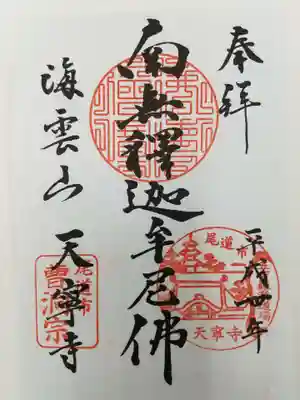 奉拝
平成四年
南無釋迦牟尼佛
海雲山 天寧寺
尾道市
天寧寺
尾道市
曹洞宗